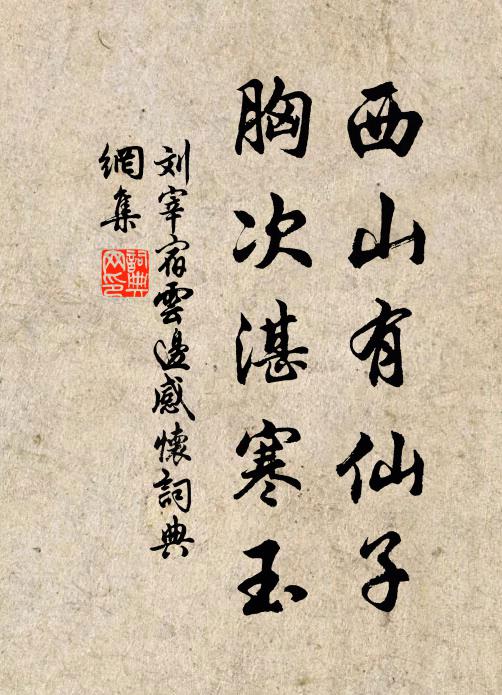 西山有仙子
胸次湛寒玉
刘宰宿雲邊感懷詞典
網集
詞典
网印